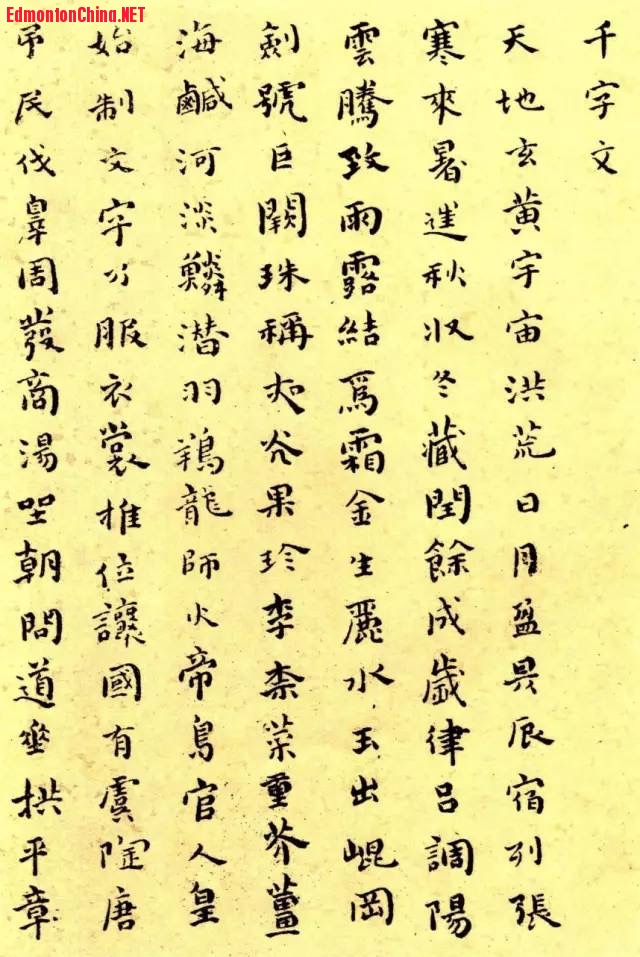 EdmontonChina.NET
千字文
天地玄黃宇宙洪荒日月盈昃辰宿列張
寒來暑往秋收冬藏閏餘成歲律呂調陽
雲騰致雨露結爲霜金生麗水玉出崐岡
劍號巨闕珠稱夜光果珍李柰菜重芥薑
海鹹河淡鱗潜羽翔龍師火帝鳥官人皇
始制文字乃服衣裳推位讓國有虞陶唐
弔民伐辠周發商湯坐朝問道垂拱平章